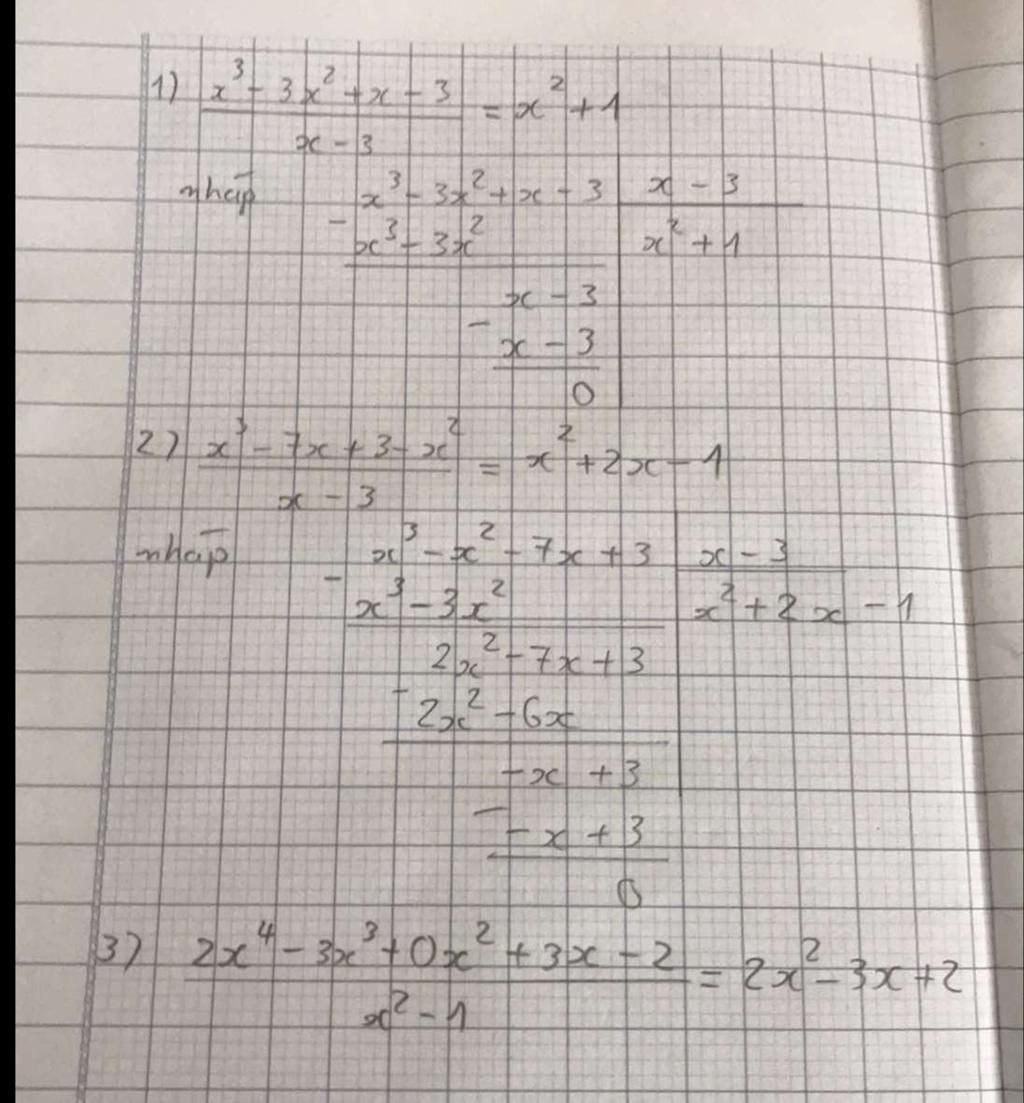 1) x³ - 3x² + x - 3 = x² + 1
x - 3
nháp x³ - 3x² + x - 3 x - 3
- x³ - 3x² x² + 1
x - 3
- x - 3
0
2) x³ - 7x + 3 - x² = x² + 2x - 1
x - 3
nháp x³ - x² - 7x + 3 x - 3
- x³ - 3x² x² + 2x - 1
2x² - 7x + 3
- 2x² - 6x
-x + 3
- -x + 3
0
3) 2x⁴ - 3x³ + 0x² + 3x - 2 = 2x² - 3x + 2
x² - 1